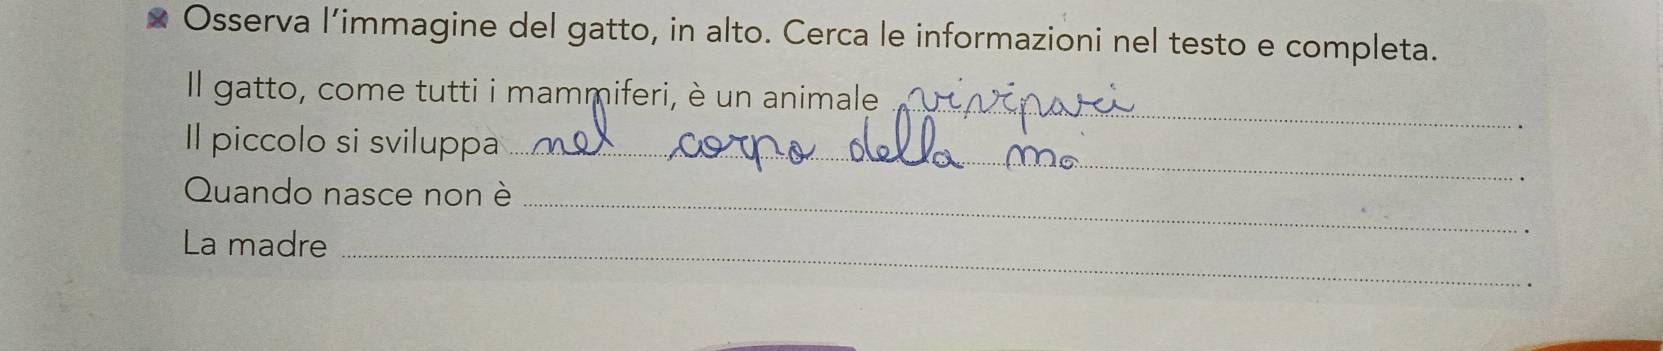 Osserva l'immagine del gatto, in alto. Cerca le informazioni nel testo e completa.
Il gatto, come tutti i mammiferi, è un animale vivipari.
Il piccolo si sviluppa nel corpo della ma.
Quando nasce non è .
La madre .